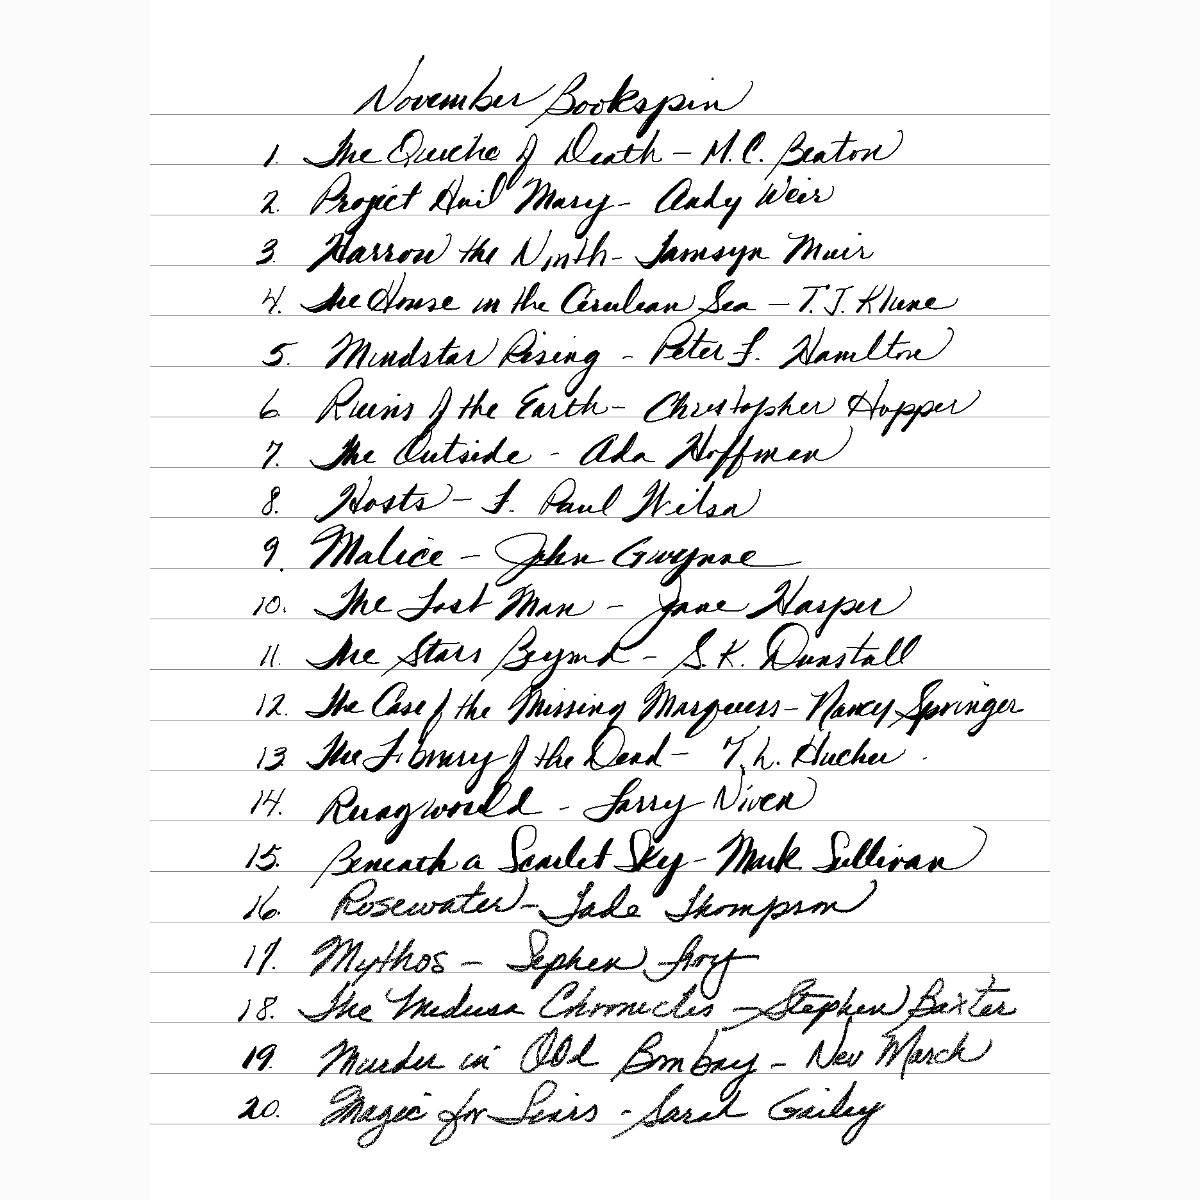 November Bookspin
1. The Quiche of Death - M.C. Beaton
2. Project Hail Mary - Andy Weir
3. Harrow the Ninth - Tamsyn Muir
4. The House in the Cerulean Sea - T.J. Klune
5. Mindstar Rising - Peter F. Hamilton
6. Ruins of the Earth - Christopher Hopper
7. The Outside - Ada Hoffman
8. Hosts - F. Paul Wilson
9. Malice - John Gwynne
10. The Lost Man - Jane Harper
11. The Stars Beyond - S.K. Dunstall
12. The Case of the Missing Marquess - Nancy Springer
13. The Library of the Dead - T.L. Huchu
14. Ringworld - Larry Niven
15. Beneath a Scarlet Sky - Mark Sullivan
16. Rosewater - Tade Thompson
17. Mythos - Sephen Fry
18. The Medusa Chronicles - Stephen Baxter
19. Murder in Old Bombay - Nev March
20. Magic for Liars - Sarah Gailey